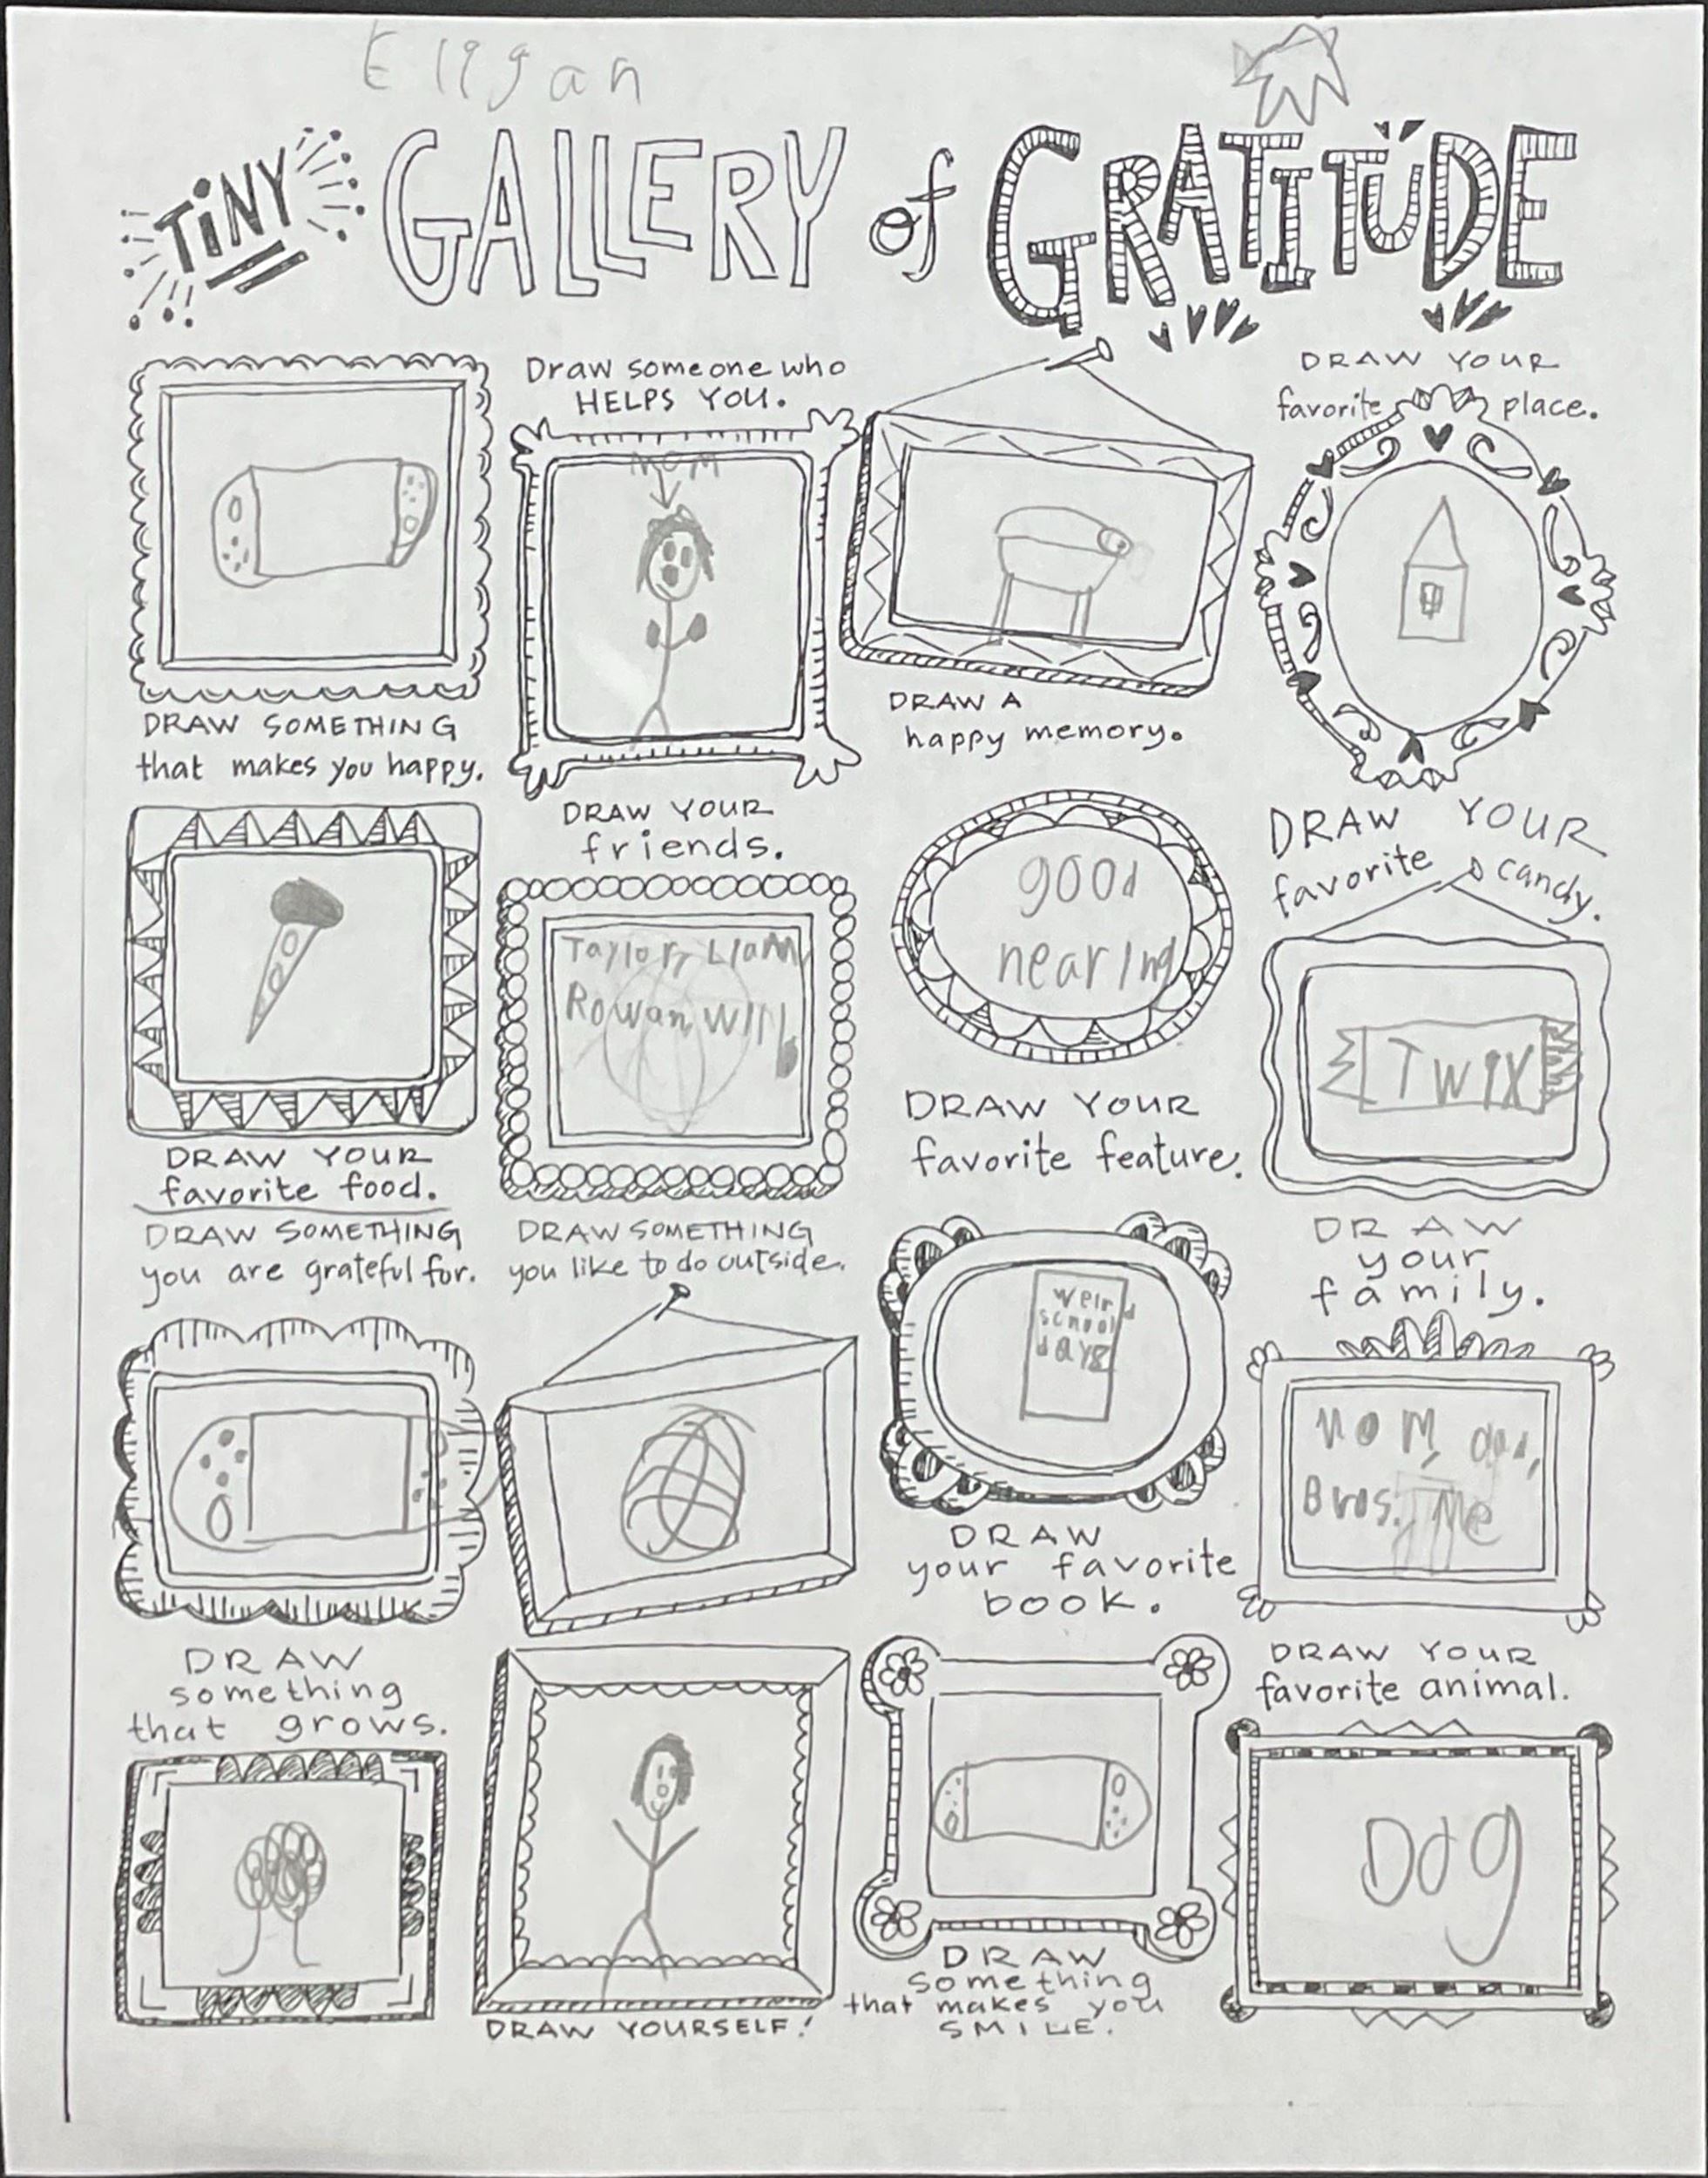 Eligan
TiNY GALLERY of GRATITUDE
DRAW SOMETHING
that makes you happy.
Draw someone who
HELPS YOU.
MOM
DRAW A
happy memory.
DRAW YOUR
favorite place.
DRAW YOUR
favorite food.
DRAW YOUR
friends.
Taylor, Liam,
Rowan, Will
good
hearing
DRAW YOUR
favorite feature.
DRAW YOUR
favorite candy.
TWIX
DRAW SOMETHING
you are grateful for.
DRAW SOMETHING
you like to do outside.
weird
school
days
DRAW
your favorite
book.
DRAW
your
family.
MOM, dad,
Bros. Me
DRAW
something
that grows.
DRAW YOURSELF!
DRAW
something
that makes you
SMILE.
DRAW YOUR
favorite animal.
Dog